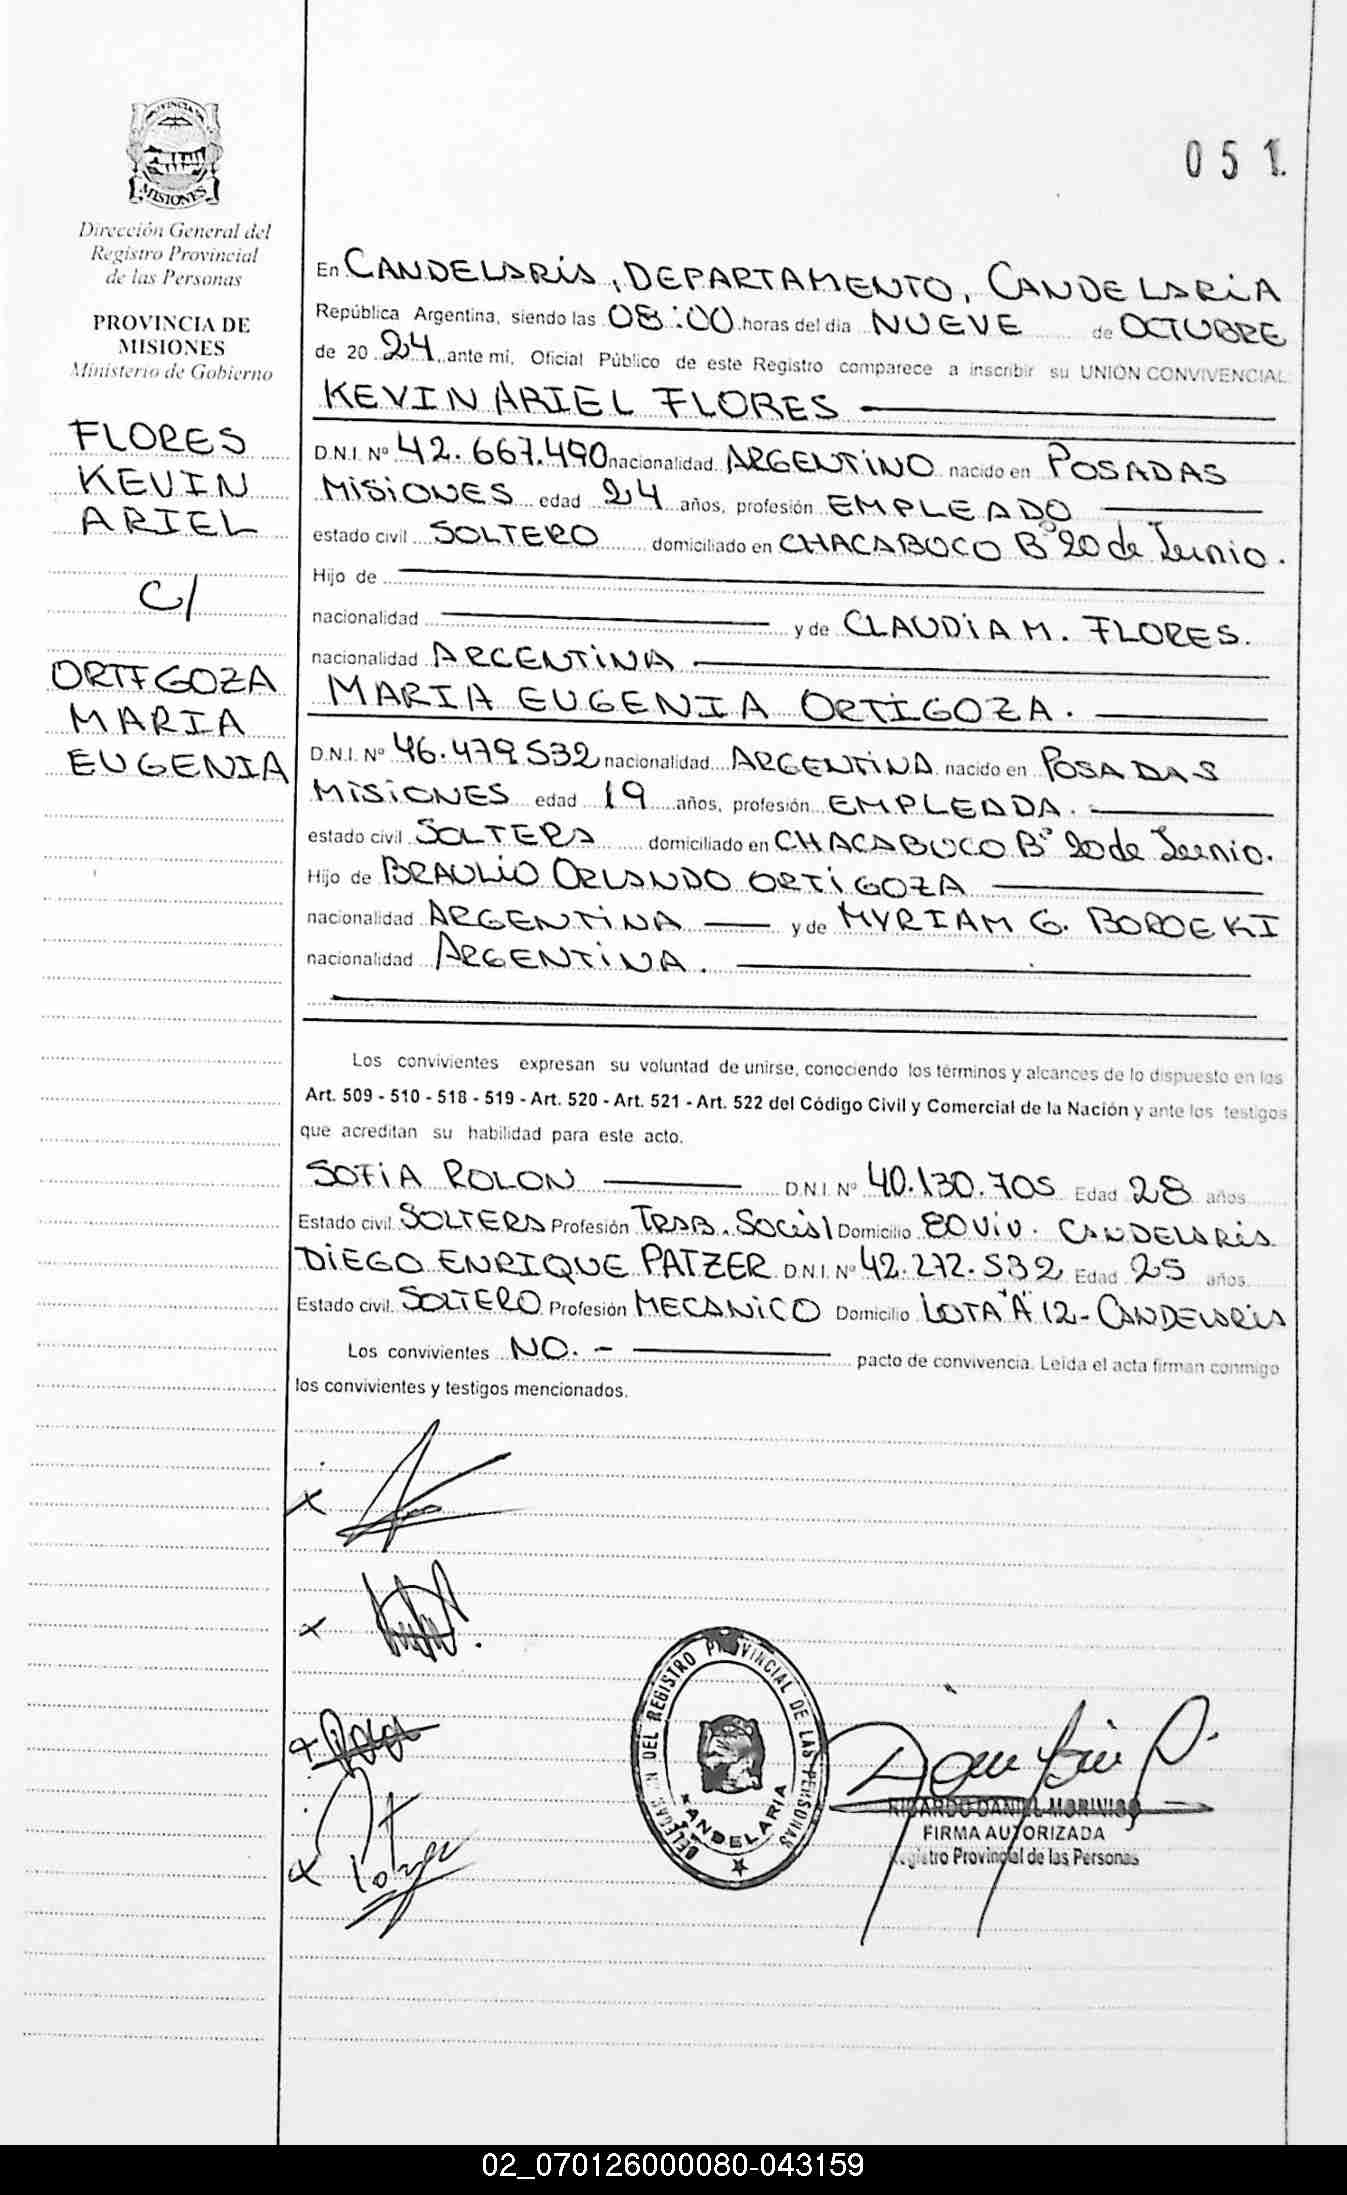 PROVINCIA DE
MISIONES
Dirección General del
Registro Provincial
de las Personas
PROVINCIA DE
MISIONES
Ministerio de Gobierno
FLORES
KEVIN
ARIEL
C/
ORTIGOZA
MARIA
EUGENIA
051
En CANDELARIA, DEPARTAMENTO, CANDELARIA
República Argentina, siendo las 08:00 horas del día NUEVE de OCTUBRE
de 20 24 ante mí, Oficial Público de este Registro comparece a inscribir su UNIÓN CONVIVENCIAL
KEVIN ARIEL FLORES
D.N.I. Nº 42.667.490 nacionalidad ARGENTINO nacido en POSADAS
MISIONES edad 24 años, profesión EMPLEADO
estado civil SOLTERO domiciliado en CHACABOCO Bº 20 de Junio.
Hijo de
nacionalidad y de CLAUDIA M. FLORES.
nacionalidad ARGENTINA
MARIA EUGENIA ORTIGOZA.
D.N.I. Nº 46.479.532 nacionalidad ARGENTINA nacido en POSADAS
MISIONES edad 19 años, profesión EMPLEADA.
estado civil SOLTERA domiciliado en CHACABUCO Bº 20 de Junio.
Hijo de BRAULIO ORLANDO ORTIGOZA
nacionalidad ARGENTINA y de MYRIAM G.
nacionalidad ARGENTINA.
Los convivientes expresan su voluntad de unirse, conociendo los términos y alcances de lo dispuesto en los
Art. 509 - 510 - 518 - 519 - Art. 520 - Art. 521 - Art. 522 del Código Civil y Comercial de la Nación y ante los testigos
que acreditan su habilidad para este acto.
SOFIA ROLON D.N.I. Nº 40.130.705 Edad 28 años
Estado civil SOLTERA Profesión TRAB. Social Domicilio 80 Viv. CANDELARIA
DIEGO ENRIQUE PATZER D.N.I. Nº 42.272.532 Edad 25 años.
Estado civil SOLTERO Profesión MECANICO Domicilio LOTA "A" 12- CANDELARIA
Los convivientes NO. - pacto de convivencia. Leída el acta firman conmigo
los convivientes y testigos mencionados.
DELEGACION DEL REGISTRO PROVINCIAL DE LAS PERSONAS
CANDELARIA
RICARDO DANIEL MORINIGO
FIRMA AUTORIZADA
Registro Provincial de las Personas
02_070126000080-043159